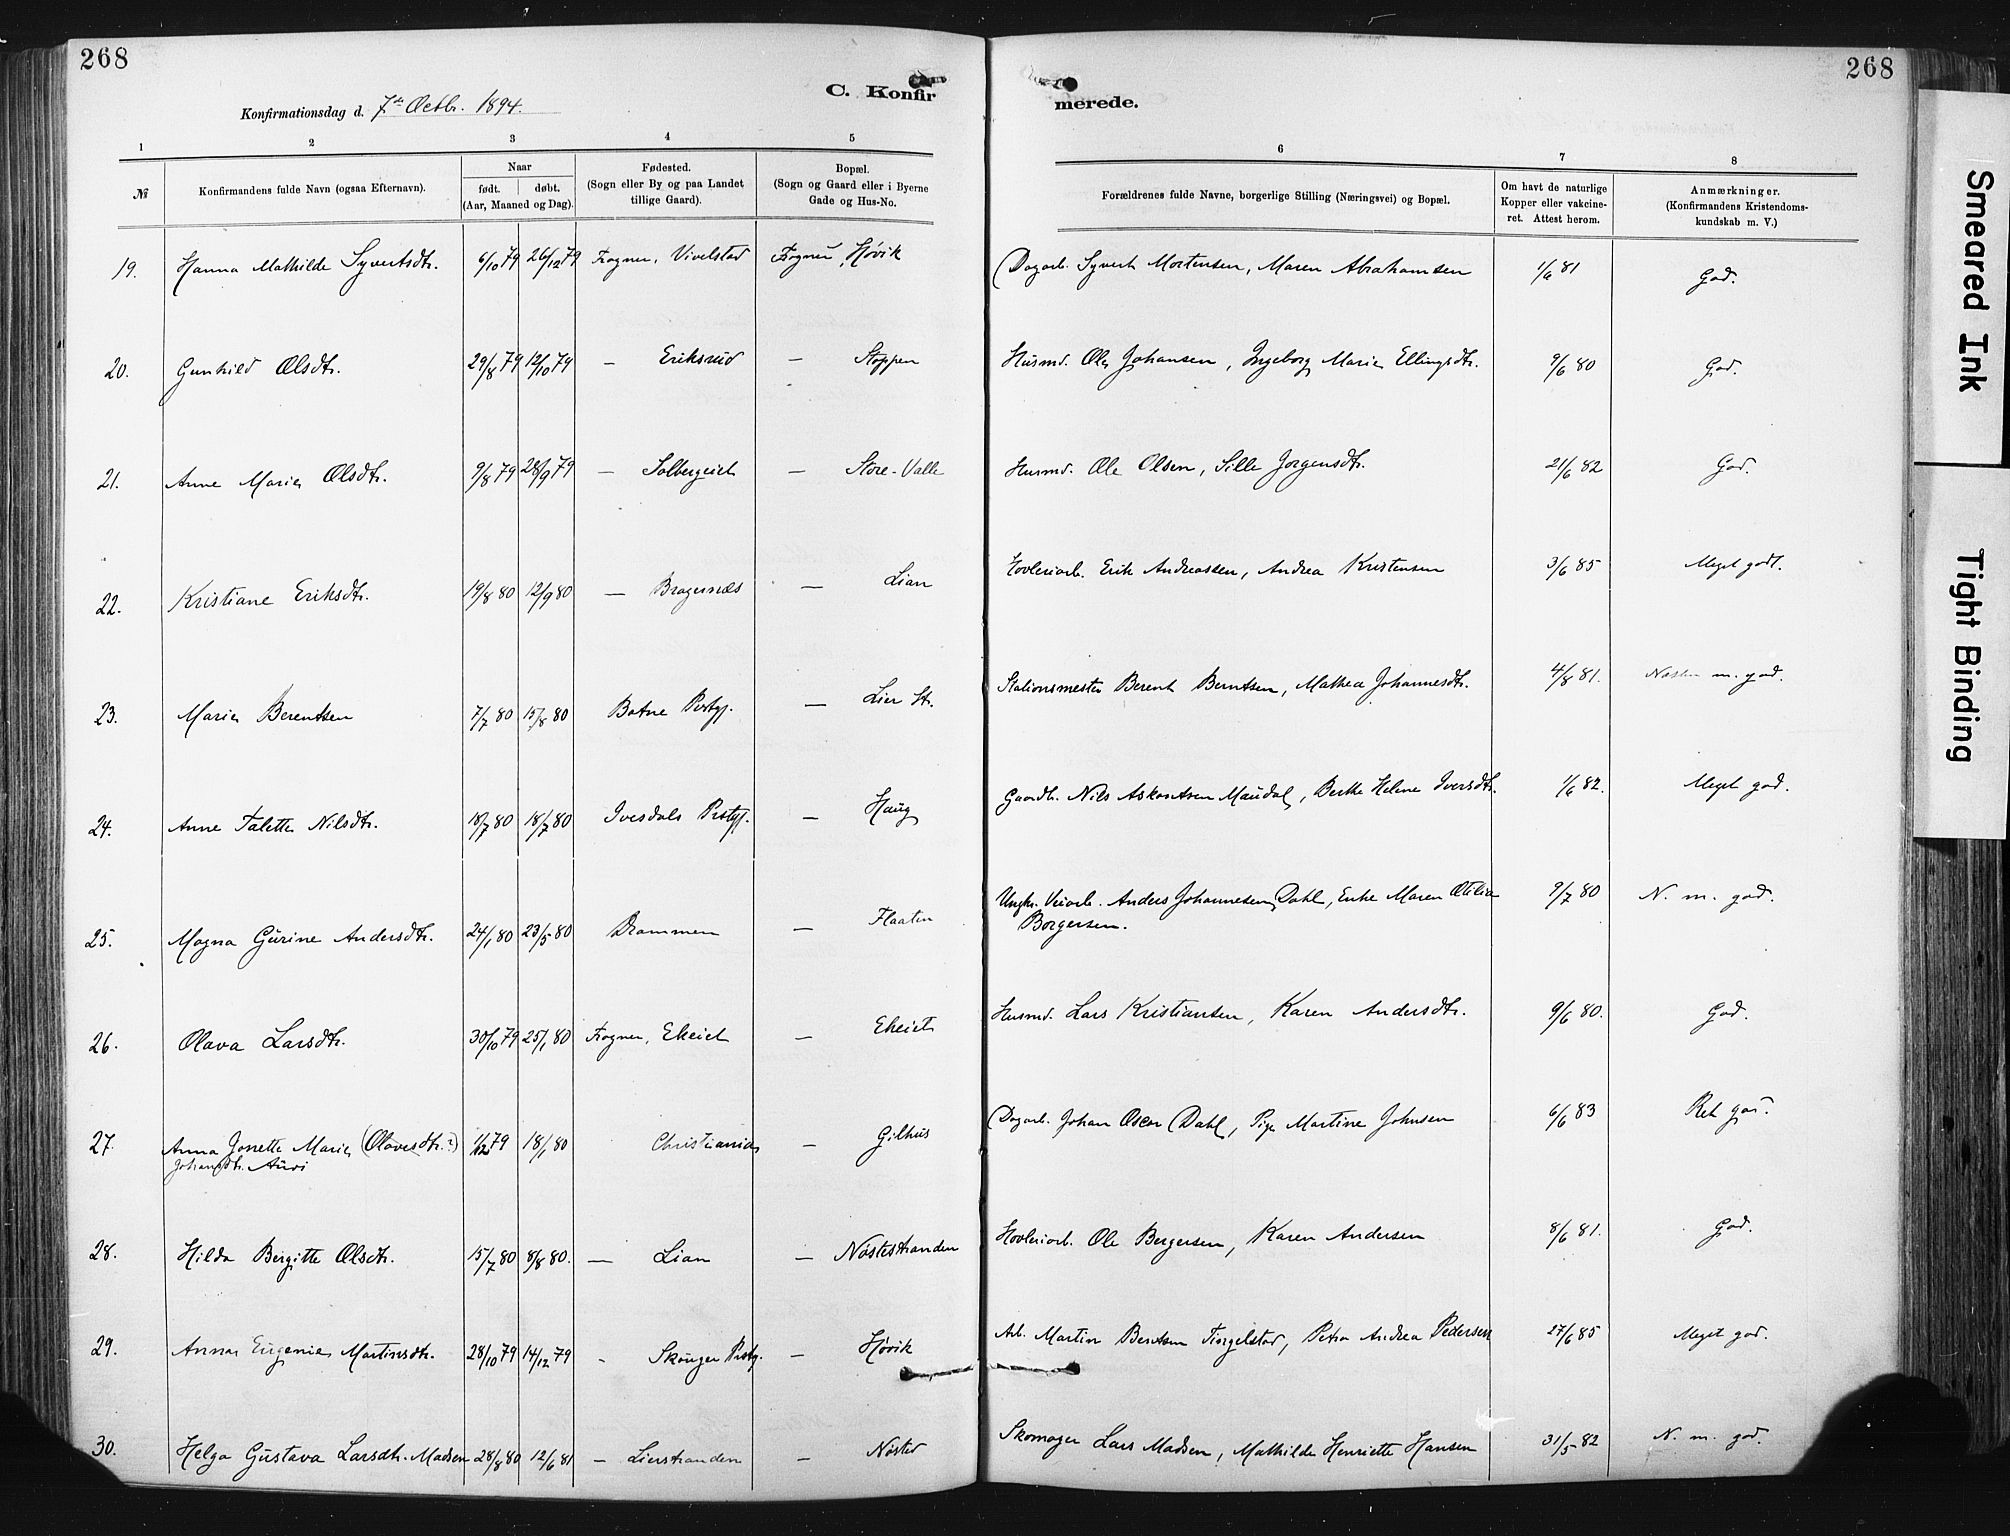 268
268
Konfirmationsdag d. 7de Octbr. 1894.
C. Konfir
merede.
1 2 3 4 5 6 7 8
№
Konfirmandens fulde Navn (ogsaa Efternavn).
Naar
født. døbt.
(Aar, Maaned og Dag).
Fødested.
(Sogn eller By og paa Landet
tillige Gaard).
Bopæl.
(Sogn og Gaard eller i Byerne
Gade og Hus-No.
Forældrenes fulde Navne, borgerlige Stilling (Næringsvei) og Bopæl.
Om havt de naturlige
Kopper eller vakcine-
ret. Attest herom.
Anmærkninger.
(Konfirmandens Kristendoms-
kundskab m. V.)
19. Hanna Mathilde Syvertsdtr. 6/10 79 26/12 79 Frogner, Vivelstad Frogner, Høvik Dagarb. Syvert Mortensen, Maren Abrahamsen 1/6 81 God.
20. Gunhild Olsdtr. 29/8 79 12/10 79 — Eriksrud — Stoppen Husmd. Ole Johansen, Ingeborg Marie Ellingsdtr. 9/6 80 God.
21. Anne Marie Olsdtr. 9/8 79 28/9 79 — Solbergeiet — Store-Valle Husmd. Ole Olsen, Sille Jørgensdtr. 21/6 82 God.
22. Kristiane Eriksdtr. 19/8 80 12/9 80 — Bragernæs — Lian Høvleriarb. Erik Andreassen, Andrea Kristensen 3/6 85 Meget godt.
23. Marie Berentsen 7/7 80 15/8 80 Botne Prstgj. — Lier St. Stationsmester Berent Berntsen, Mathea Johannesdtr. 4/8 81. Næsten m. god.
24. Anne Talette Nilsdtr. 18/7 80 18/7 80 Ivesdals Prstgj. — Haug Gaardb. Nils Askantsen Maudal, Berthe Helene Iversdtr. 1/6 82. Meget god.
25. Magna Gurine Andersdtr. 24/1 80 23/5 80 Drammen — Flaaten Ungkr. Veiarb. Anders Johannesen Dahl, Enke Maren Otilia 9/7 80 N. m. god.
Borgersen.
26. Olava Larsdtr. 30/10 79 25/1 80 Frogner, Ekeiet — Ekeiet Husmd. Lars Kristiansen, Karen Andersdtr. 9/6 80. God.
27. Anna Jonette Marie (Olavesdtr.?) 1/12 79 18/1 80 Christiania — Gilhus Dagarb. Johan Oscar Dahl, Pige Martine Johnsen 6/6 83 Ret god.
Johansdtr.
28. Hilda Bergitte Olsdtr. 15/7 80 8/8 80. — Lian — Nøstestranden Høvleriarb. Ole Bergersen, Karen Andersen 8/6 81. God.
29. Anna Eugenie Martinsdtr. 28/10 79 14/12 79 - Skouger Prstg. — Høvik Arb. Martin Berntsen Tingelstad, Petra Andrea Pedersen 27/6 85 Meget god.
30. Helga Gustava Larsdtr. Madsen 28/8 80 12/6 81 — Lierstranden — Nøsted Skomager Lars Madsen, Mathilde Henriette Hansen 31/5 82 N. m. god.
Smeared Ink
Tight Binding